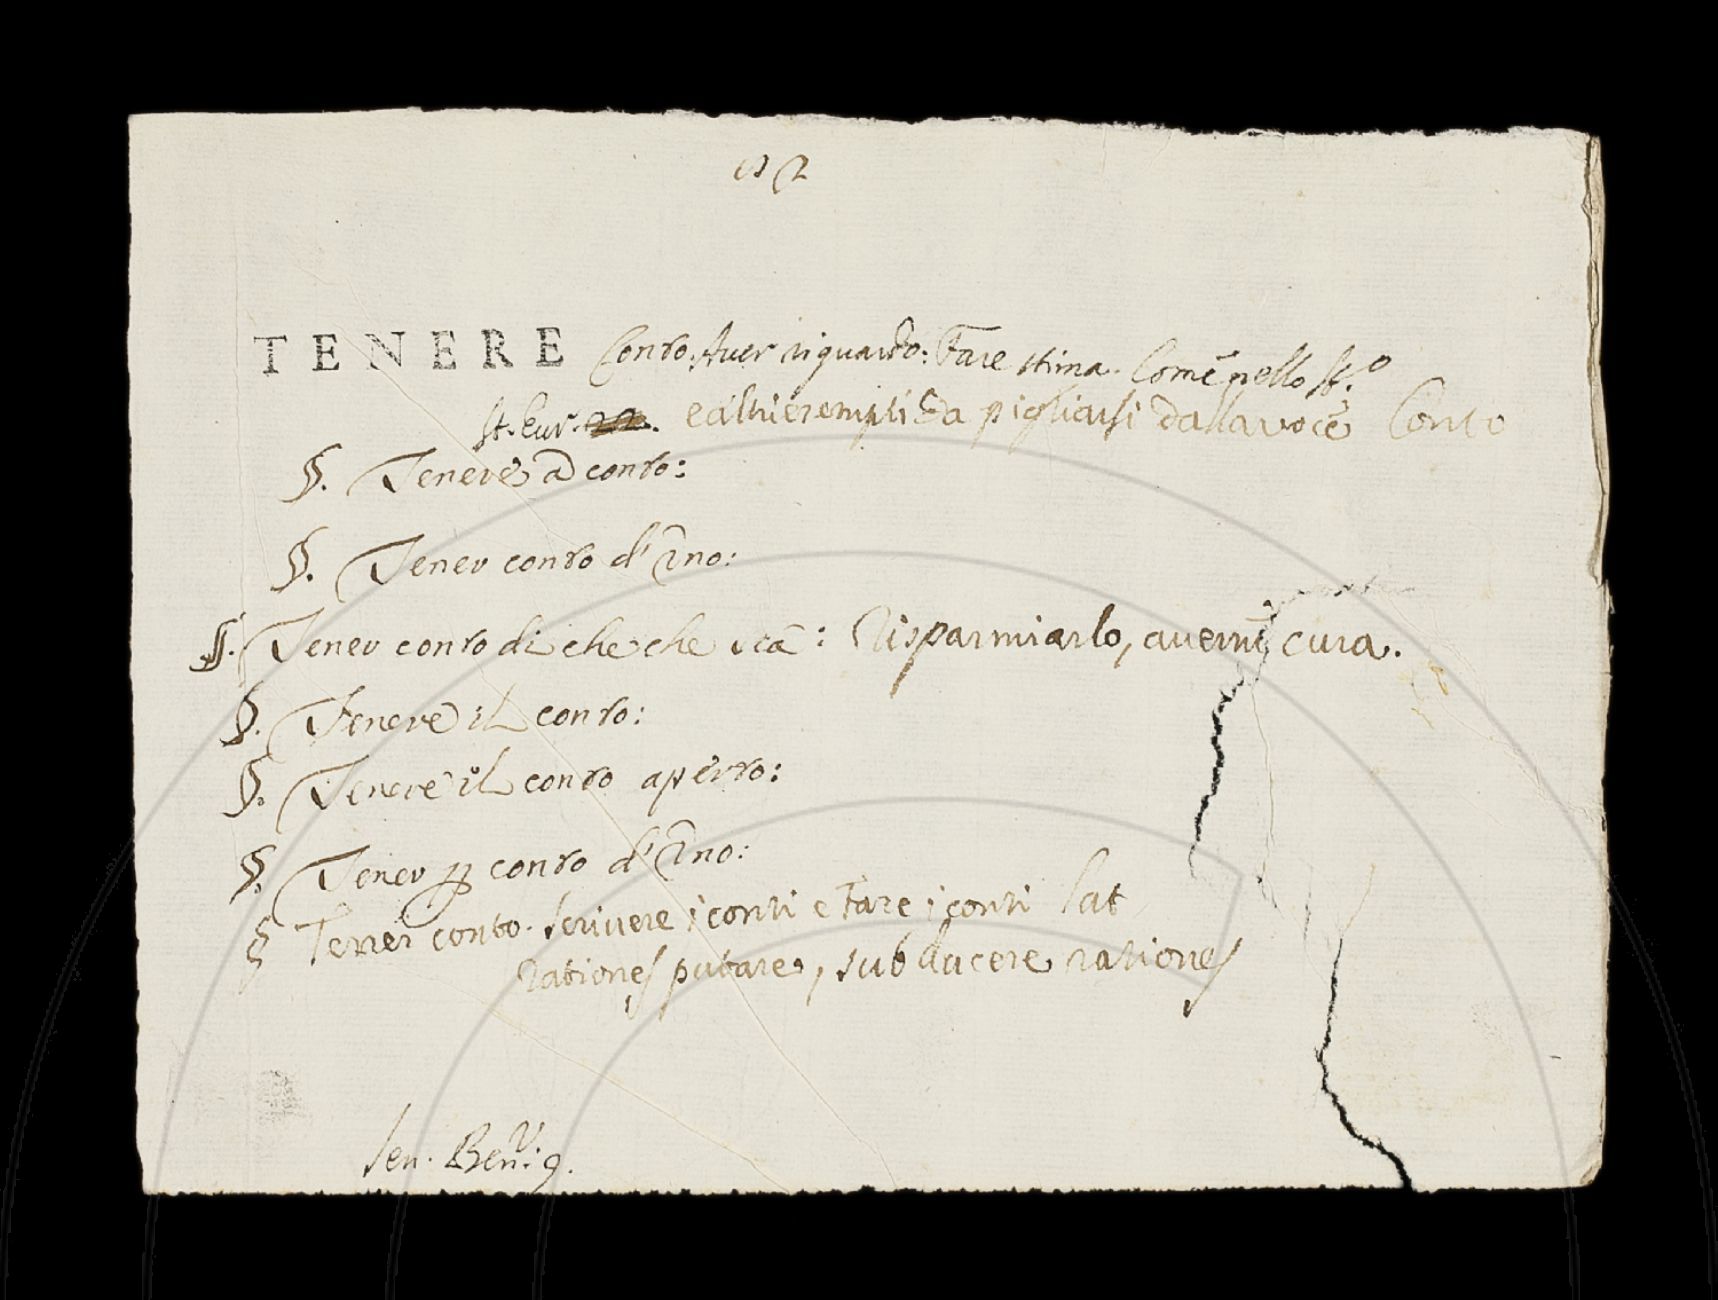 TENERE Conto. Aver riguardo: Fare stima. Come nello
St. Eur. e altri esempli da pigliarsi dalla voce Conto
§. Tenere a conto:
§. Tener conto d'uno:
§. Tener conto di che che sia: Risparmiarlo, averne cura.
§. Tenere il conto:
§. Tenere il conto aperto:
§. Tener p conto d'uno:
§ Tener conto. Scrivere i conti e fare i conti Lat
rationes putare, subducere rationes
Sen. Ben.